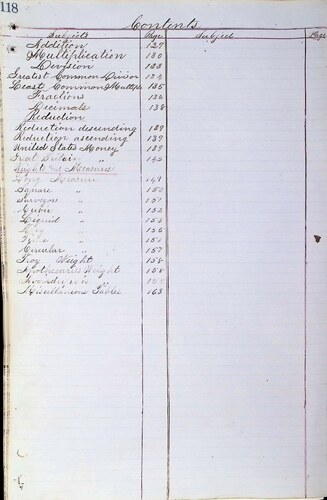 118
Contents
Subjects Page Subject Page
Addition 127
Multiplication 130
Division 133
Greatest Common Divisor 134
Least Common Multiple 135
Fractions 136
Decimals 138
Reduction
Reduction descending 139
Reduction ascending 139
United States Money 139
Great Britain " 145
Weights and Measures
Long Measure 149
Square " 150
Surveyors " 151
Cubic " 152
Liquid "
Dry "
Time "
Circular " 157
Troy Weight 158
Apothecaries Weight 158
Avoirdupois "
Miscellaneous Tables 163